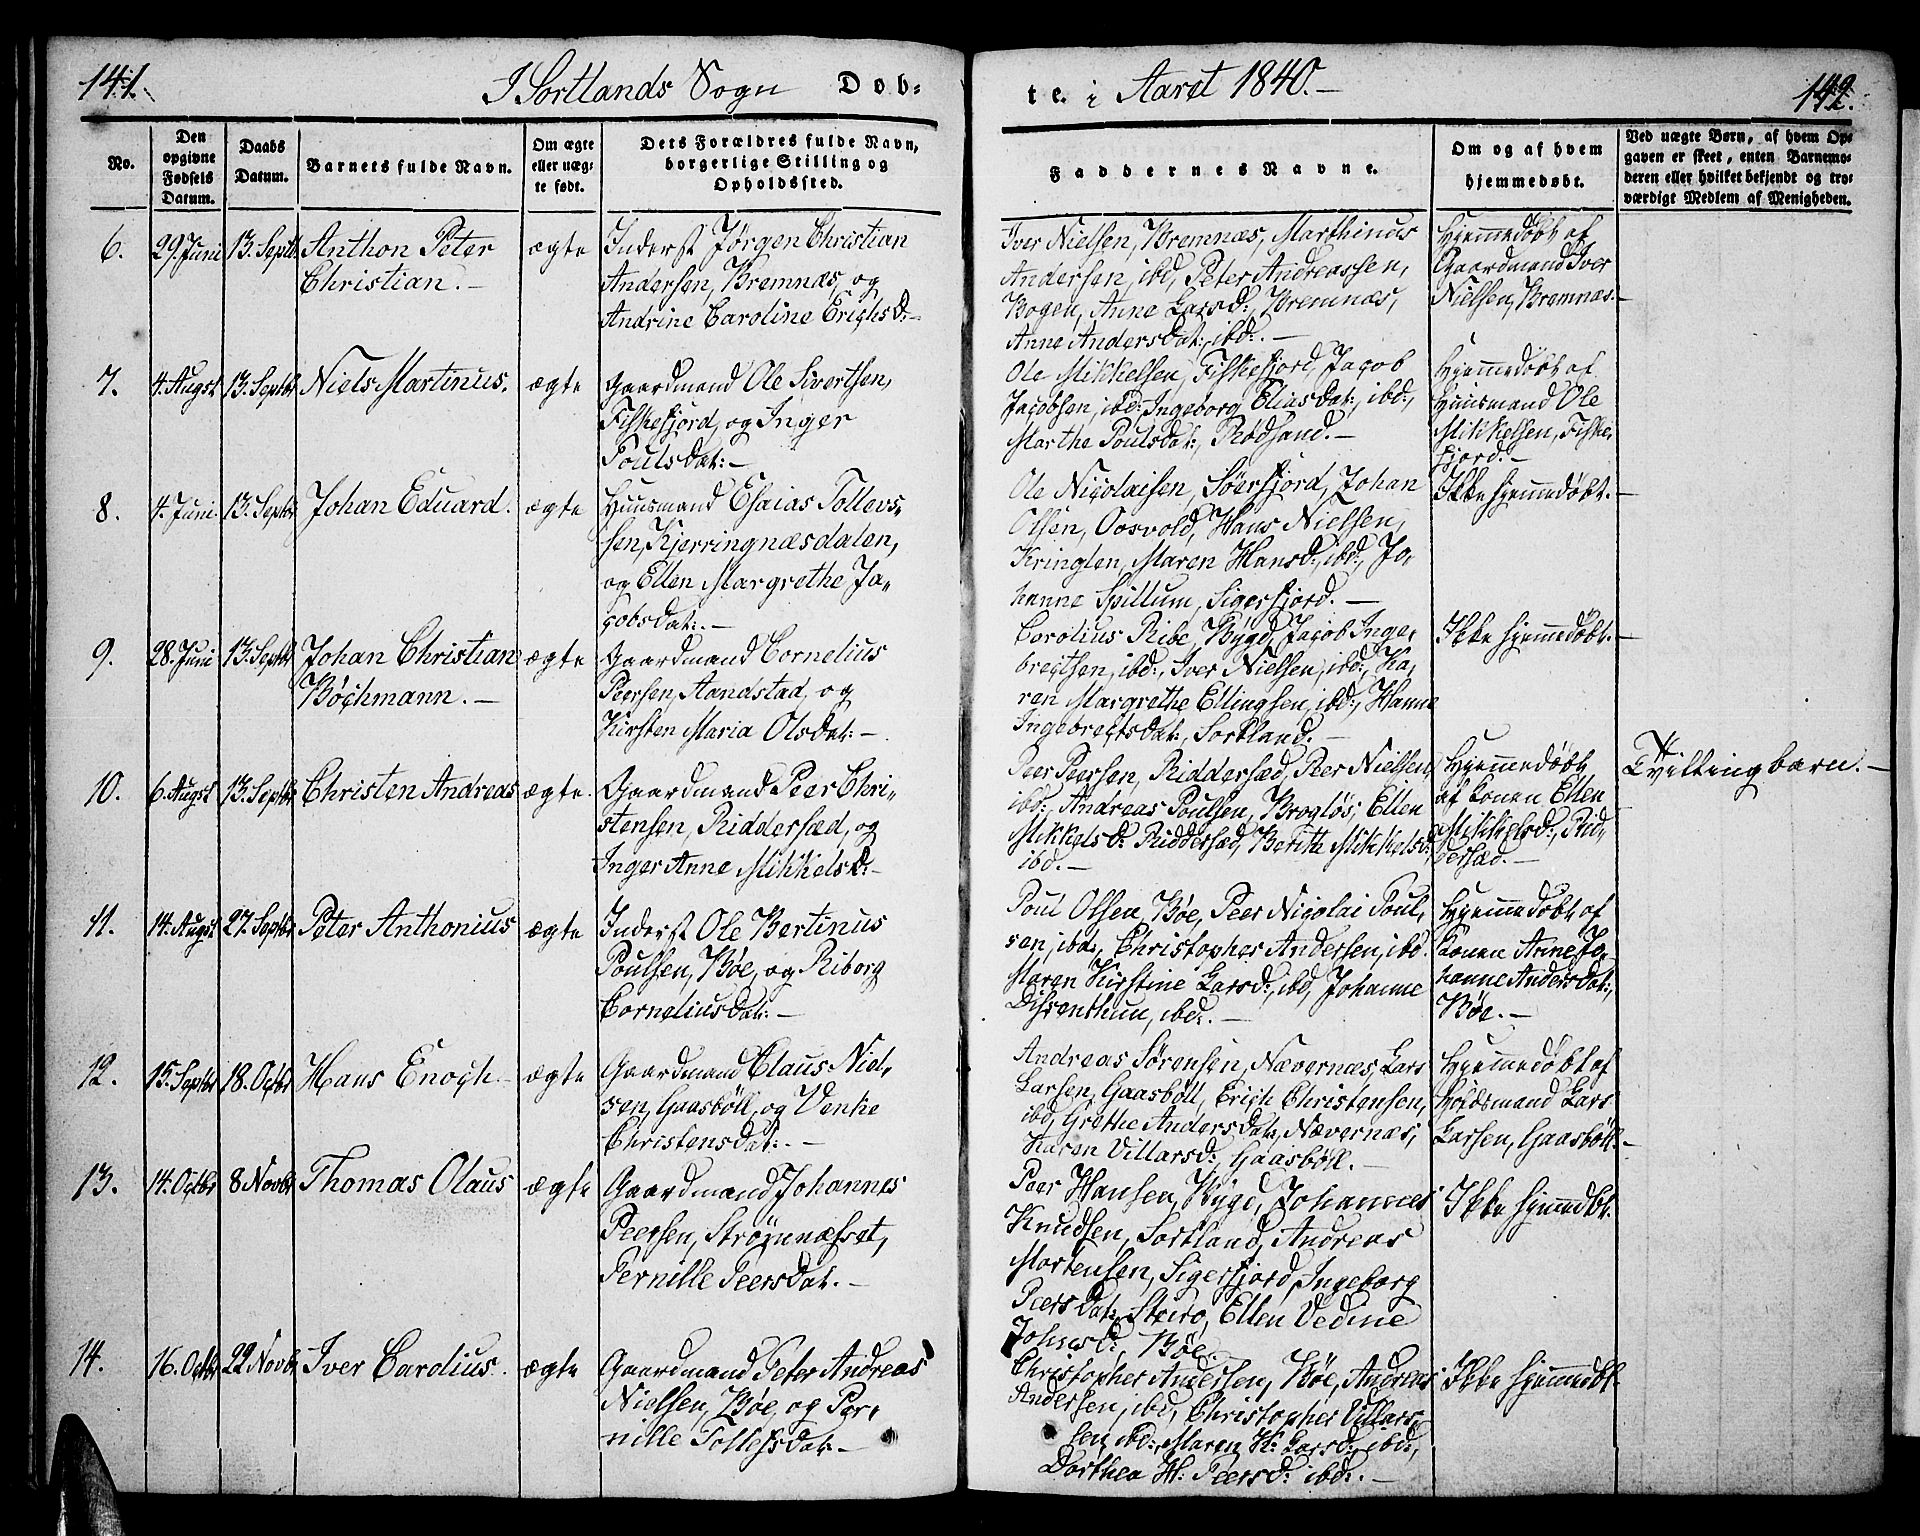 141.
I Sortlands Sogn Døb-
No.
Den opgivne Fødsels Datum.
Daabs Datum.
Barnets fulde Navn.
Om ægte eller uæg-
te født.
Dets Forældres fulde Navn,
borgerlige Stilling og
Opholdssted.
6. 29. Juni 13. Septbr Anthon Peter ægte Inderst Jørgen Christian
Christian.— Andersen, Bremnæs, og
Andrine Caroline Erichsd:—
7. 4. Augst 13. Septbr Niels Martinus. ægte Gaardmand Ole Sivertsen,
Fiskefjord, og Inger
Poulsdat:—
8. 4. Juni 13. Septbr Johan Eduard. ægte Huusmand Esaias Tollevs-
sen, Kjerringnæsdalen,
og Ellen Margrethe Ja-
cobsdat:.—
9. 28. Juni 13. Septbr Johan Christian ægte Gaardmand Cornelius
Bøchmann.— Peersen, Aandstad, og
Kirsten Maria Olsdat:—
10. 6. Augst 13. Septbr Christen Andreas ægte. Gaardmand Peer Chri-
stensen, Riddersæd, og
Inger Anne Mikkelsd:—
11. 14. Augst 27. Septbr Peter Anthonius ægte Inderst Ole Bertinus
Poulsen, Bøe, og Riborg
Corneliusdat:—
12. 15. Septbr 18. Octbr Hans Enoch.— ægte Gaardmand Claus Niel-
sen, Gaasbøll, og Venke
Christensdat:.—
13. 14. Octbr 8 Novbr Thomas Olaus ægte Gaardmand Johannes
Peersen, Strømnæsset,
Pernille Peersdat.—
14. 16. Octbr 22 Novbr Iver Carolius. ægte Gaardmand Peter Andreas
Nielsen, Bøe, og Per-
nille Tollefsdat:—
te. i Aaret 1840.—
142.
Faddernes Navne.
Om og af hvem
hjemmedøbt.
Ved uægte Børn, af hvem Op-
gaven er skeet, enten Barnemo-
deren eller hvilket bekjendt og tro-
værdigt Medlem af Menigheden.
Iver Nielsen, Bremnæs, Marthinus
Andersen, ibd, Peter Andreassen,
Bogen, Anne Larsd:, Bremnæs,
Anne Andersdat:, ibd:.—
Hjemmedøbt af
Gaardmand Iver
Nielsen, Bremnæs.—
Ole Mikkelsen, Fiskefjord, Jacob
Jacobsen, ibd: Ingeborg Eliasdat:, ibd:,
Marthe Poulsdat:, Rødsand.—
Hjemmedøbt af
Huusmand Ole
Mikkelsen, Fiske-
fjord.—
Ole Nicolaisen, Søerfjord, Johan
Olsen, Oosvold, Hans Nielsen,
Kringlen, Maren Hansd:, ibd:, Jo-
hanne Spillum, Sigerfjord.—
Ikke hjemmedøbt.—
Carolius Ribe, Bygd, Jacob Inge-
breitsen, ibd:, Iver Nielsen, ibd:, Ka-
ren Margrethe Ellingsen, ibd:, Hanne
Ingebregtsdat:, Sortland.—
Ikke hjemmedøbt.—
Peer Peersen, Riddersæd, Peer Nielsen,
ibd:, Andreas Poulsen, Brogløs, Ellen
Mikkelsd: Riddersæd, Berith Mikkelsd:
ibd.—
Hjemmedøbt
af Konen Ellen
Mikkelsd:, Rid-
dersæd.—
Tvillingbarn.—
Poul Olsen, Bøe, Peer Nicolai Poul-
sen, ibd:, Christopher Andersen, ibd:
Maren Kirstine Larsd:, ibd, Johanne
Disenthun, ibd:.—
Hjemmedøbt af
Konen Anne Jo-
hanne Andersdat:,
Bøe.—
Andreas Sørensen, Nævernæs, Lars
Larsen, Gaasbøll, Erich Christensen,
ibd, Grethe Andersdat:, Nævernæs,
Karen Villarsd:, Gaasbøll.—
Hjemmedøbt af
Lars
Larsen, Gaasbøll.—
Peer Hansen, Bygd, Johannes
Knudsen, Sortland, Andreas
Mortensen, Sigerfjord, Ingeborg
Peersdat:, Steiro, Ellen Vedine
Johnsd:, Bøe.
Ikke hjemmedbt.
Christopher Andersen, Bøe, Andreas
Andersen, ibd, Christopher Villars-
sen, ibd:, Maren K: Larsd:, ibd:,
Dorthea H: Peersd: ibd:.—
Ikke hjemmedbt.